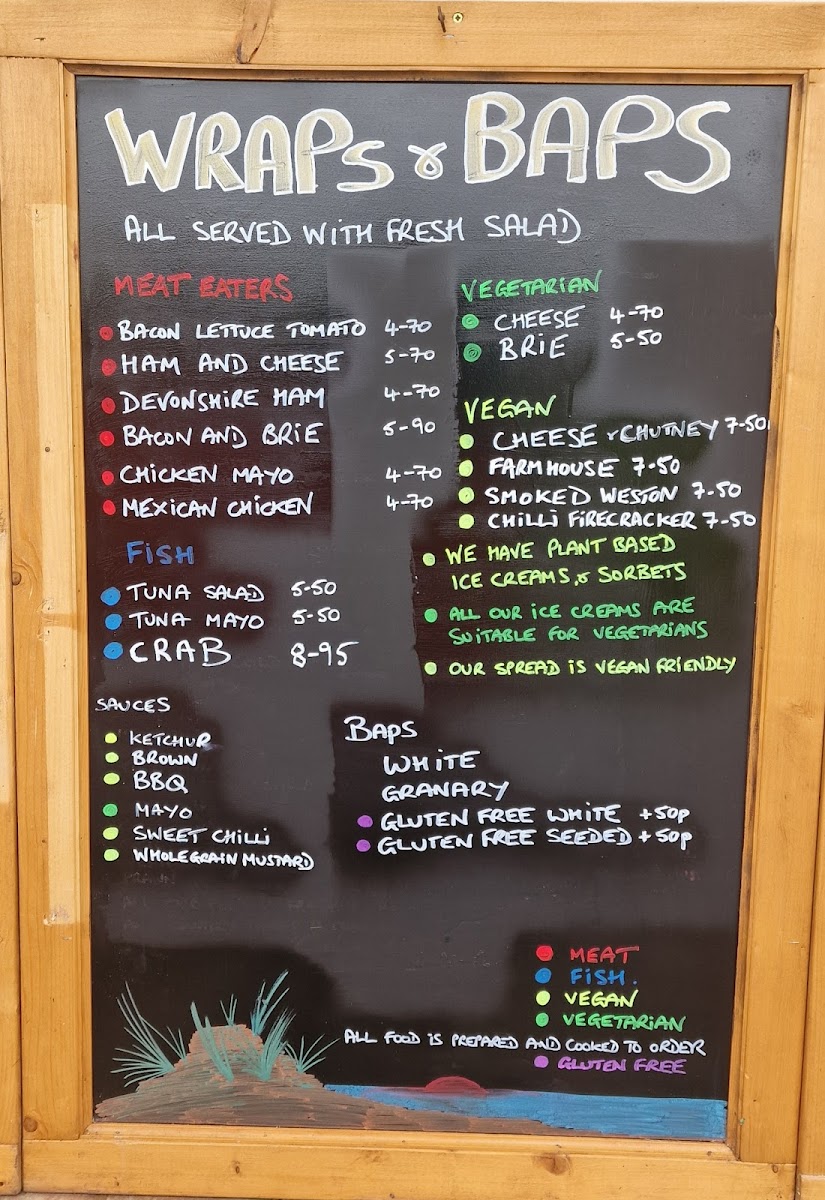 WRAPS & BAPS
ALL SERVED WITH FRESH SALAD
MEAT EATERS
BACON LETTUCE TOMATO 4-70
HAM AND CHEESE 5-70
DEVONSHIRE HAM 4-70
BACON AND BRIE 5-90
CHICKEN MAYO 4-70
MEXICAN CHICKEN 4-70
FISH
TUNA SALAD 5-50
TUNA MAYO 5-50
CRAB 8-95
VEGETARIAN
CHEESE 4-70
BRIE 5-50
VEGAN
CHEESE & CHUTNEY 7-50
FARMHOUSE 7-50
SMOKED WESTON 7-50
CHILLI FIRECRACKER 7-50
WE HAVE PLANT BASED
ICE CREAMS, & SORBETS
ALL OUR ICE CREAMS ARE
SUITABLE FOR VEGETARIANS
OUR SPREAD IS VEGAN FRIENDLY
SAUCES
KETCHUP
BROWN
BBQ
MAYO
SWEET CHILLI
WHOLEGRAIN MUSTARD
BAPS
WHITE
GRANARY
GLUTEN FREE WHITE +50p
GLUTEN FREE SEEDED +50p
MEAT
FISH.
VEGAN
VEGETARIAN
ALL FOOD IS PREPARED AND COOKED TO ORDER
GLUTEN FREE